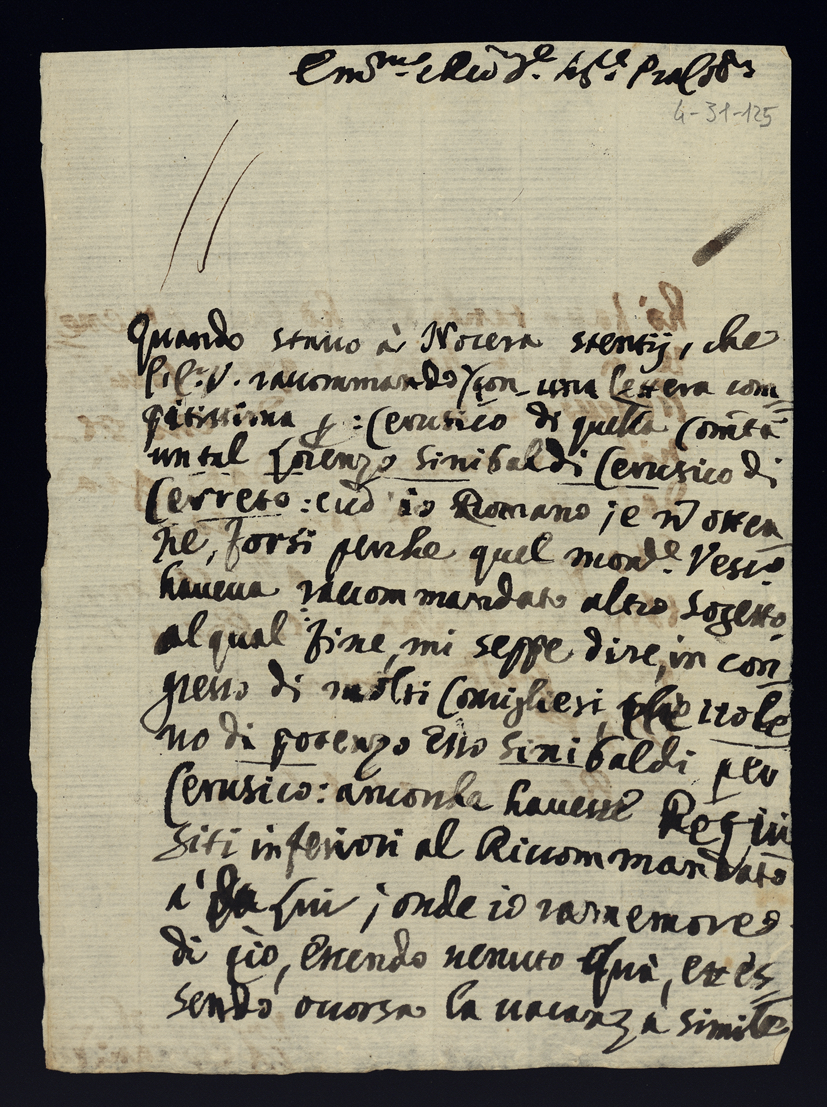 4-31-125
Quando stavo à Nocera sentij, che
V. raccommandò con una lettera com
pitissima p: Cerusico di quella Com.tà
un tal Lorenzo Sinibaldi Cerusico di
Cerreto: ciò io Romano; e nõ otten
ne, forsi perche quel mons.e Vesco.
haveva raccommandato altro Sogetto,
al qual fine, mi seppe dire, in con
gresso di molti Consigliesi, volle
no di Lorenzo esso Sinibaldi per
Cerusico: ancorche havesse Requi
siti inferiori al Riccommandato
a' da Lui; onde io rammemore
di ciò, essendo venuto quà, et es
sendo occorsa la vacanza simile